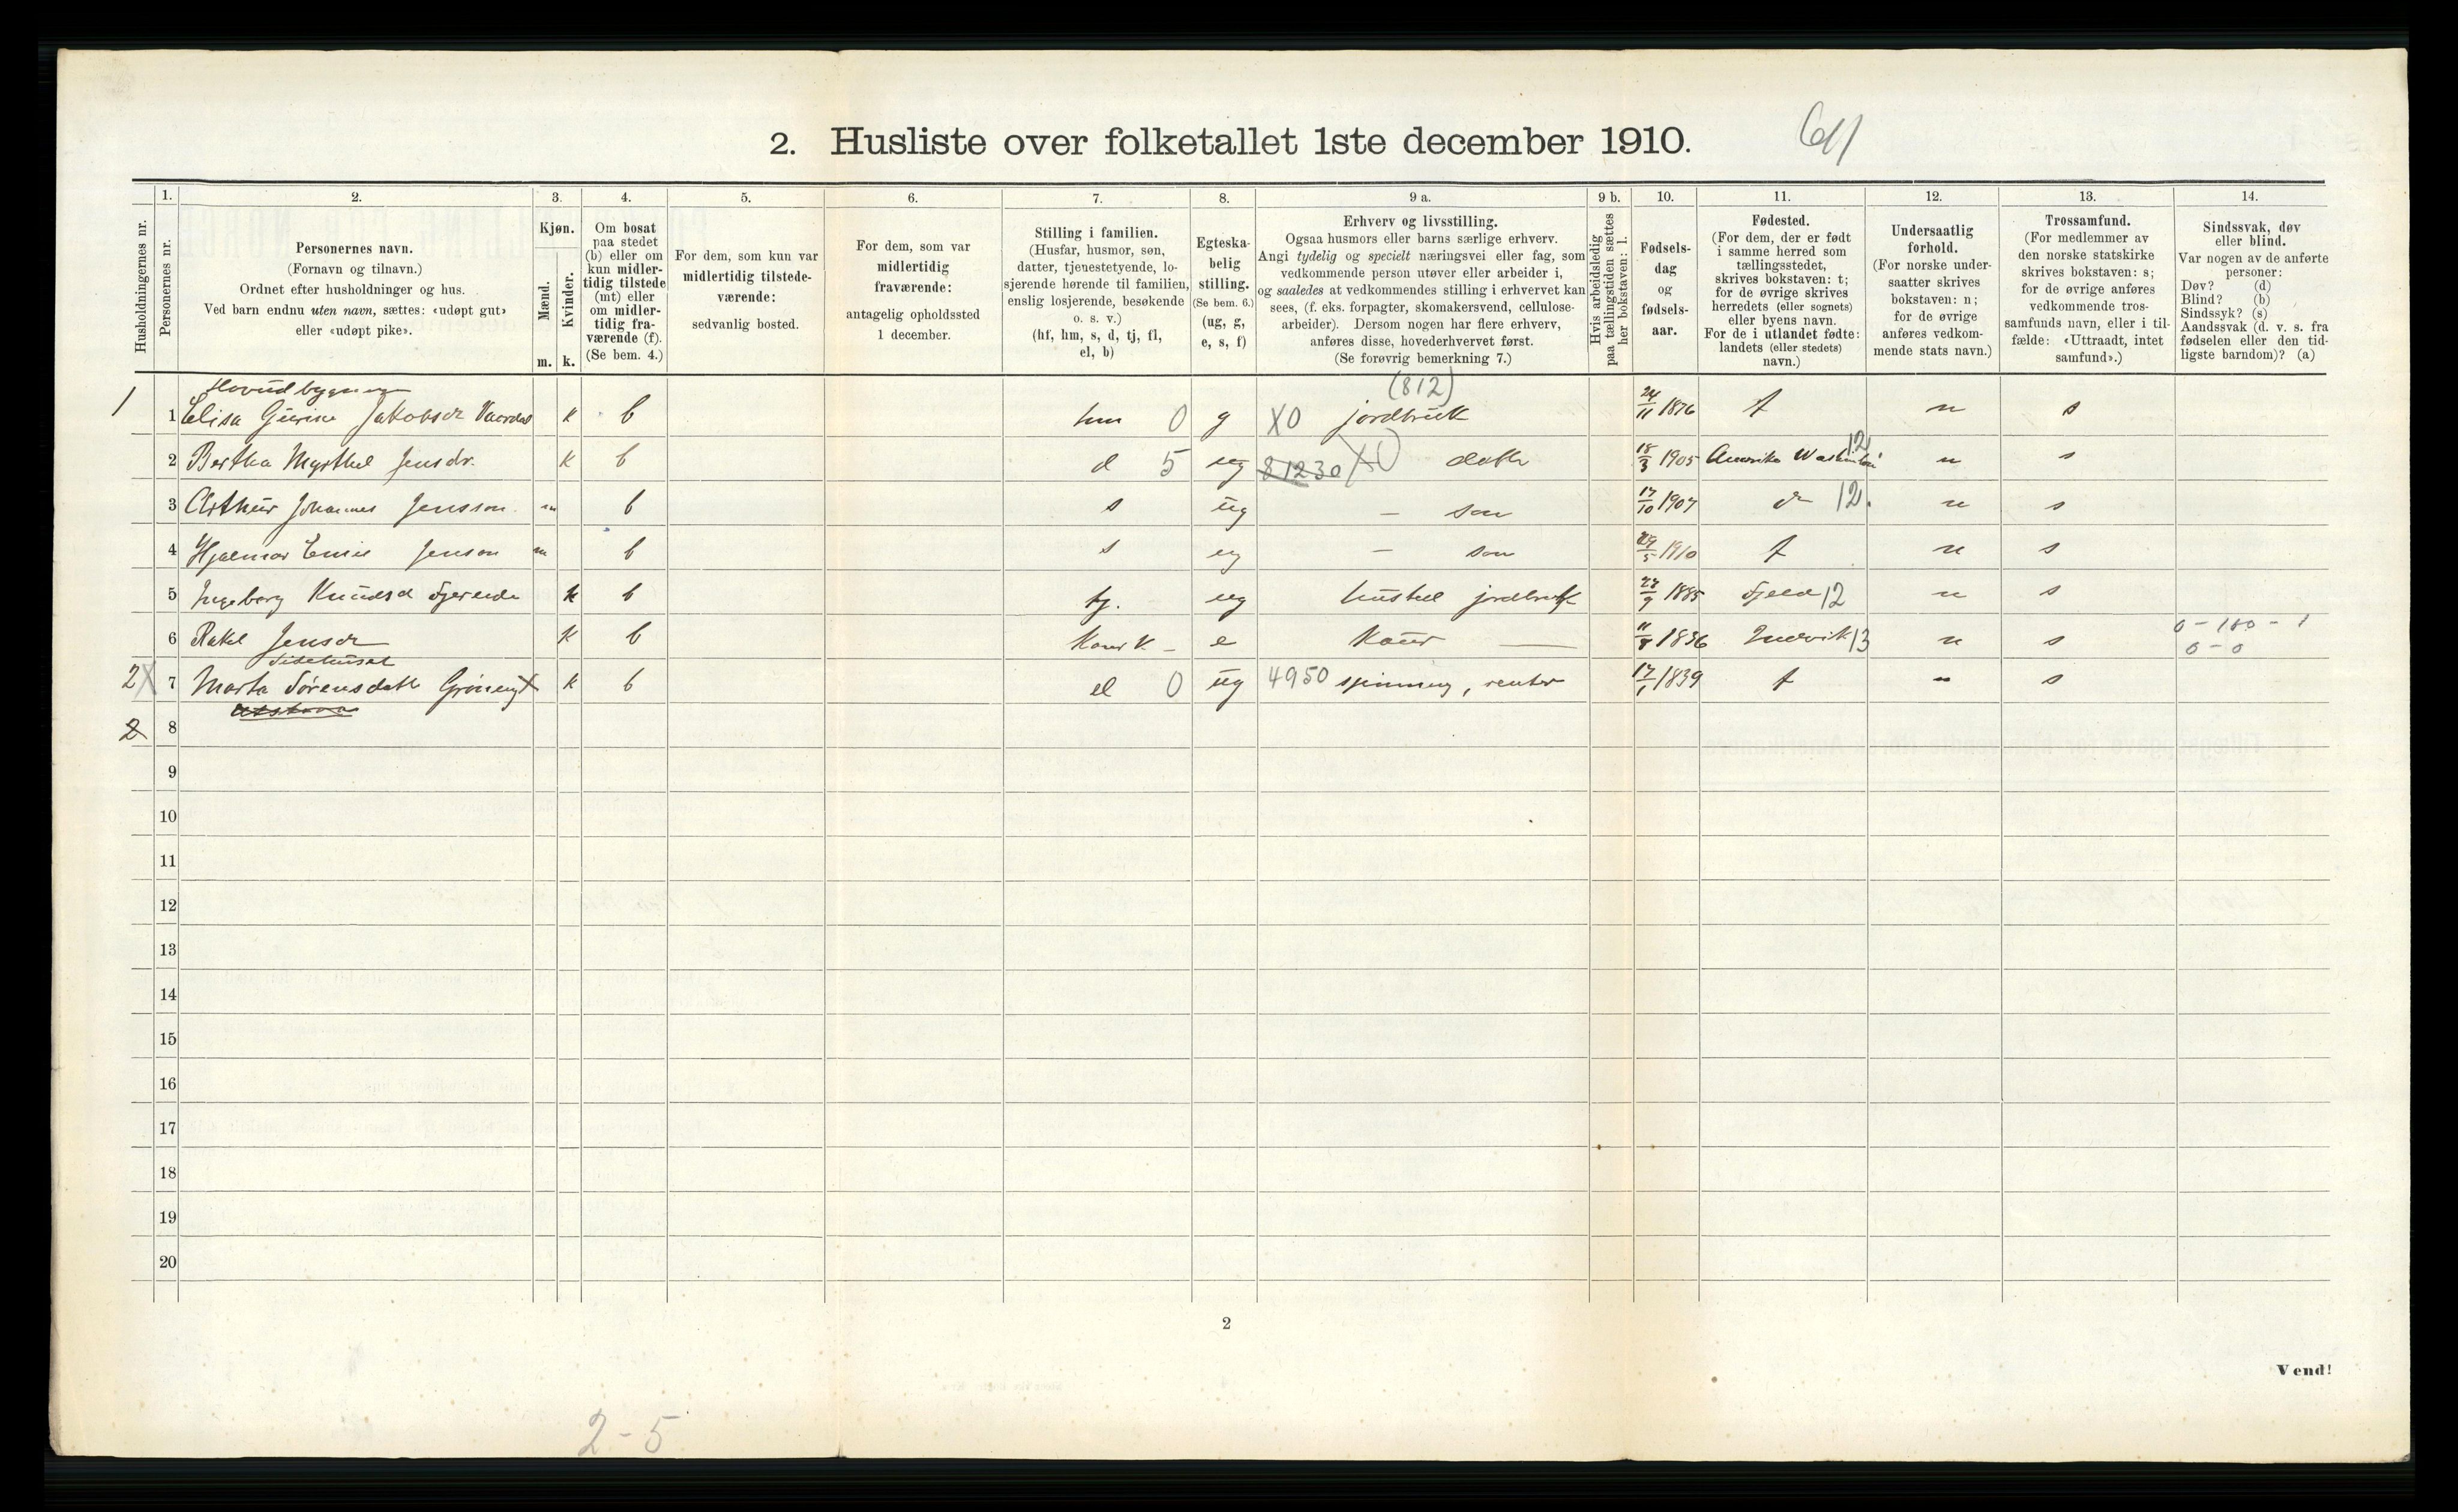 2. Husliste over folketallet 1ste december 1910.
Husholdningernes nr.
1.
Personernes nr.
2.
Personernes navn.
(Fornavn og tilnavn.)
Ordnet efter husholdninger og hus.
Ved barn endnu uten navn, sættes: «udøpt gut»
eller «udøpt pike».
3.
Kjøn.
Mænd.
Kvinder.
m. k.
4.
Om bosat
paa stedet
(b) eller om
kun midler-
tidig tilstede
(mt) eller
om midler-
tidig fra-
værende (f).
(Se bem. 4.)
5.
For dem, som kun var
midlertidig tilstede-
værende:
sedvanlig bosted.
6.
For dem, som var
midlertidig
fraværende:
antagelig opholdssted
1 december.
7.
Stilling i familien.
(Husfar, husmor, søn,
datter, tjenestetyende, lo-
sjerende hørende til familien,
enslig losjerende, besøkende
o. s. v.)
(hf, hm, s, d, tj, fl,
el, b)
8.
Egteska-
belig
stilling.
(Se bem. 6.)
(ug, g,
e, s, f)
9 a.
Erhverv og livsstilling.
Ogsaa husmors eller barns særlige erhverv.
Angi tydelig og specielt næringsvei eller fag, som
vedkommende person utøver eller arbeider i,
og saaledes at vedkommendes stilling i erhvervet kan
sees, (f. eks. forpagter, skomakersvend, cellulose-
arbeider). Dersom nogen har flere erhverv,
anføres disse, hovederhvervet først.
(Se forøvrig bemerkning 7.)
9 b.
Hvis arbeidsledig
paa tællingstiden sættes
her bokstaven: l.
10.
Fødsels-
dag
og
fødsels-
aar.
11.
Fødested.
(For dem, der er født
i samme herred som
tællingsstedet,
skrives bokstaven: t;
for de øvrige skrives
herredets (eller sognets)
eller byens navn.
For de i utlandet fødte:
landets (eller stedets)
navn.)
12.
Undersaatlig
forhold.
(For norske under-
saatter skrives
bokstaven: n;
for de øvrige
anføres vedkom-
mende stats navn.)
13.
Trossamfund.
(For medlemmer av
den norske statskirke
skrives bokstaven: s;
for de øvrige anføres
vedkommende tros-
samfunds navn, eller i til-
fælde: «Uttraadt, intet
samfund».)
14.
Sindssvak, døv
eller blind.
Var nogen av de anførte
personer:
Døv? (d)
Blind? (b)
Sindssyk? (s)
Aandssvak (d. v. s. fra
fødselen eller den tid-
ligste barndom)? (a)
(812)
1 1 Elisa Gurine Jakobsdr k b hm 0 g X0 jordbruk 24/11 1876 t n s
2 Bertha Myrthel Jensdr. k b d 5 ug 81230 X0 datter 18/3 1905 Amerika 12 n s
3 Arthur Johannes Jensson m b s ug – son 17/10 1907 12. n s
4 Hjalmar Emil Jenson m b s ug – son 29/5 1910 t n s
5 Ingeborg Knudsd k b tj. ug hustel jordbruk 1885 Fjeld 12 n s
0 – 100 – 1
6 Rakel Jensdr k b Kaar k. – e Kaar 1836 13 n s 0 – 0
Sidehuset
2 7 Marta Sørensdatter k b el 0 ug 4950 spinning, renter 17/1 1839 t n s
2 8
9
10
11
12
13
14
15
16
17
18
19
20
2
Vend!
2 - 5